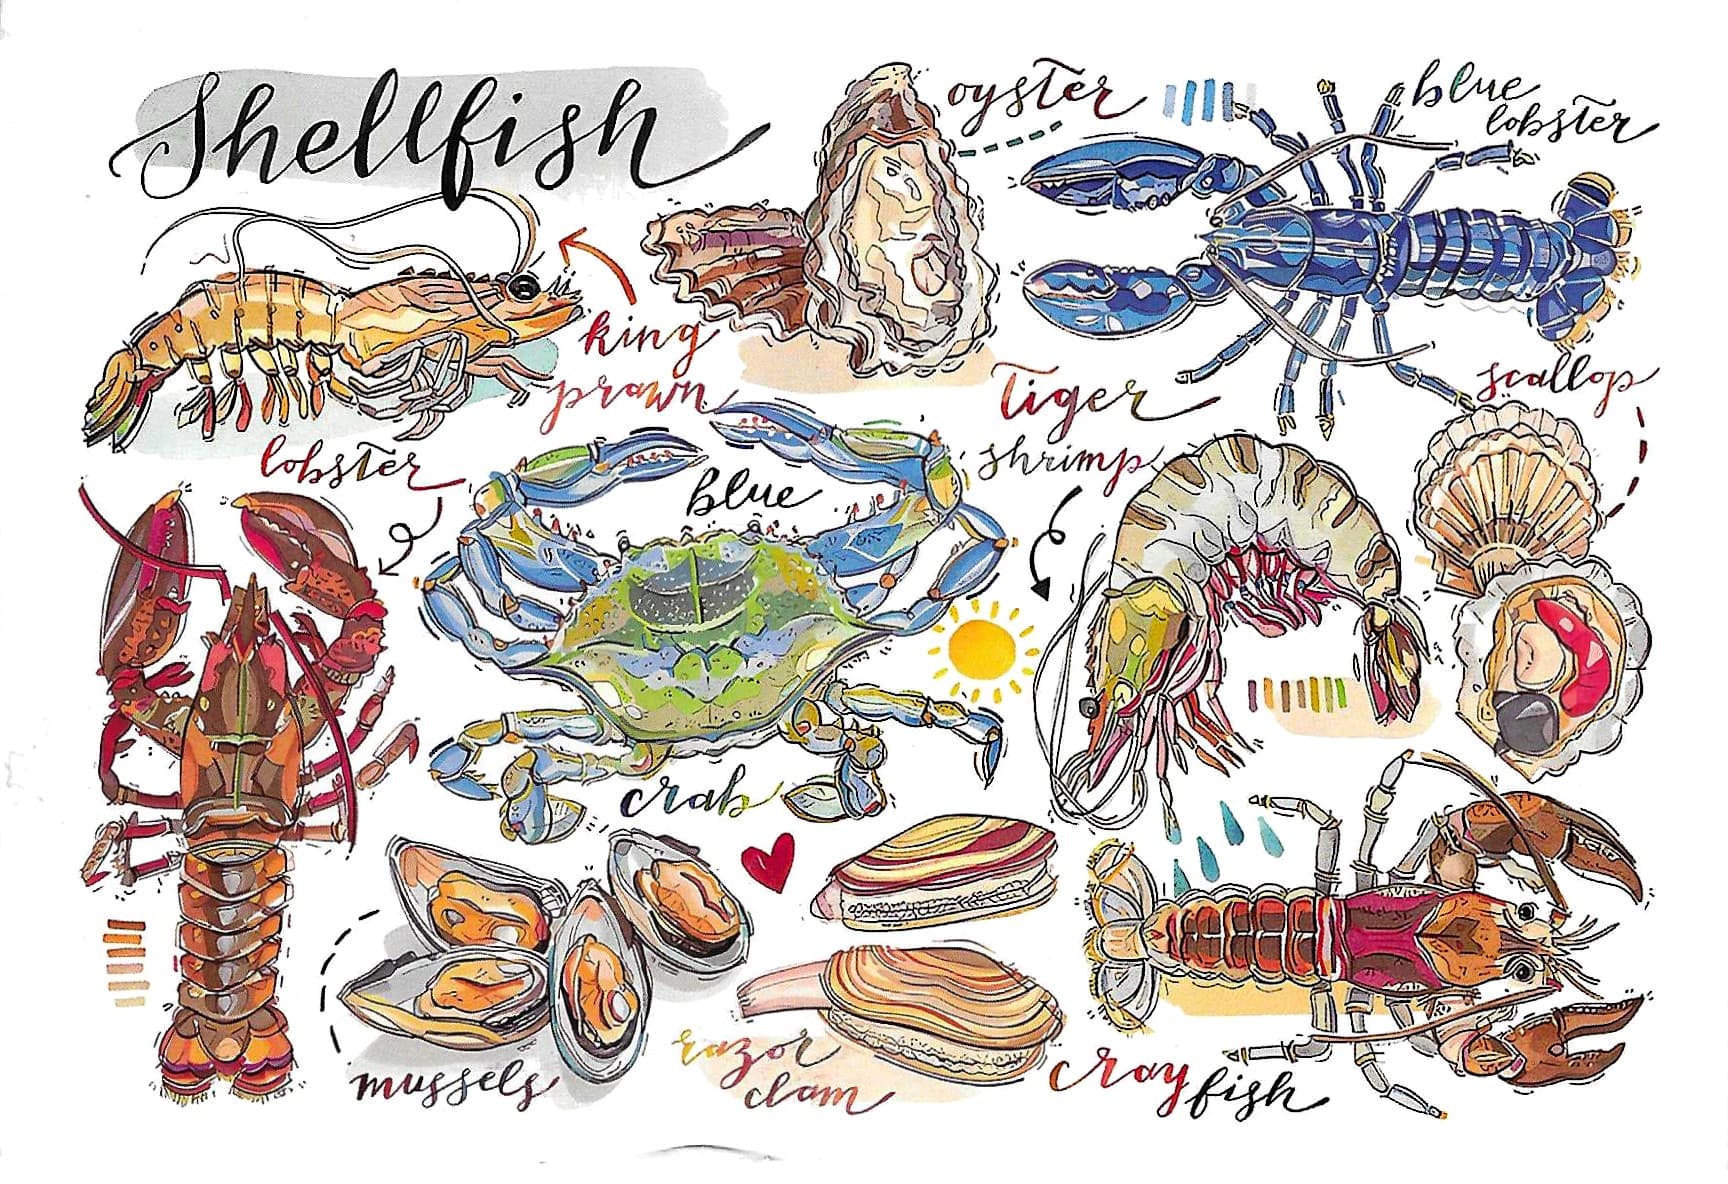 Shellfish
oyster
blue
lobster
king
prawn
Tiger
shrimp
scallop
lobster
blue
crab
mussels
razor
clam
crayfish